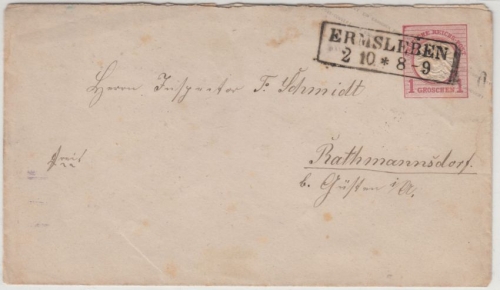 ERMSLEBEN
2 10 * 8-9
1 GROSCHEN 1
Herrn Inspector F. Schmidt
Rathmannsdorf.
b. Güsten i/A.